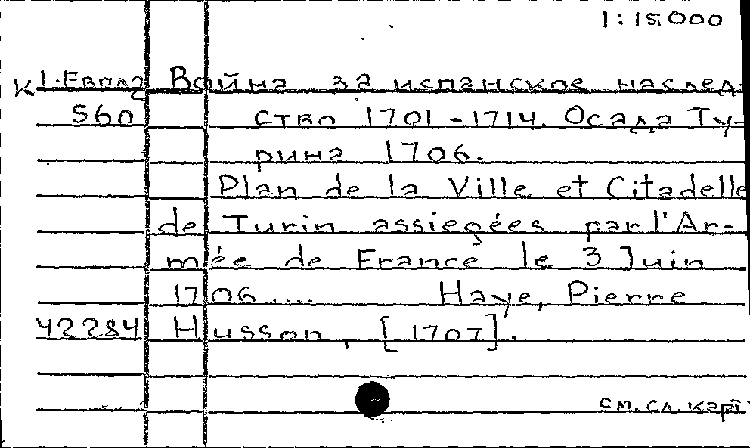 1:15.000
К 1-Европ Война за испанское наслед-
560 ство 1701-1714. Осада Ту-
рина 1706.
Plan de la Ville et Citadelle
de Turin assiegées par l'Ar-
mée de France le 3 Juin
1706.... Haye, Pierre
42284 Husson, [1707].
см. сл. карт